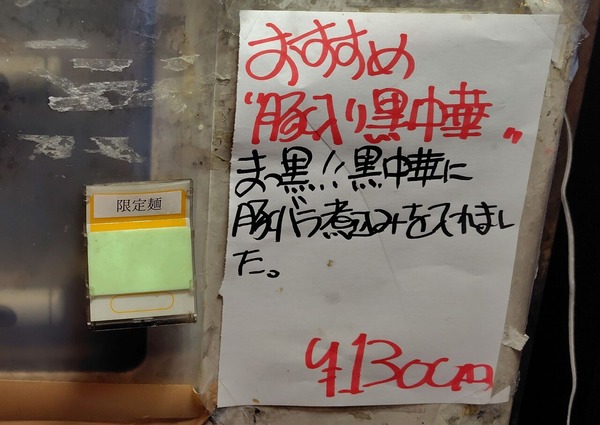 おすすめ
"豚入り黒中華"
まっ黒!!黒中華に
豚バラ煮込みを入れまし
た。
¥1300円
限定麺